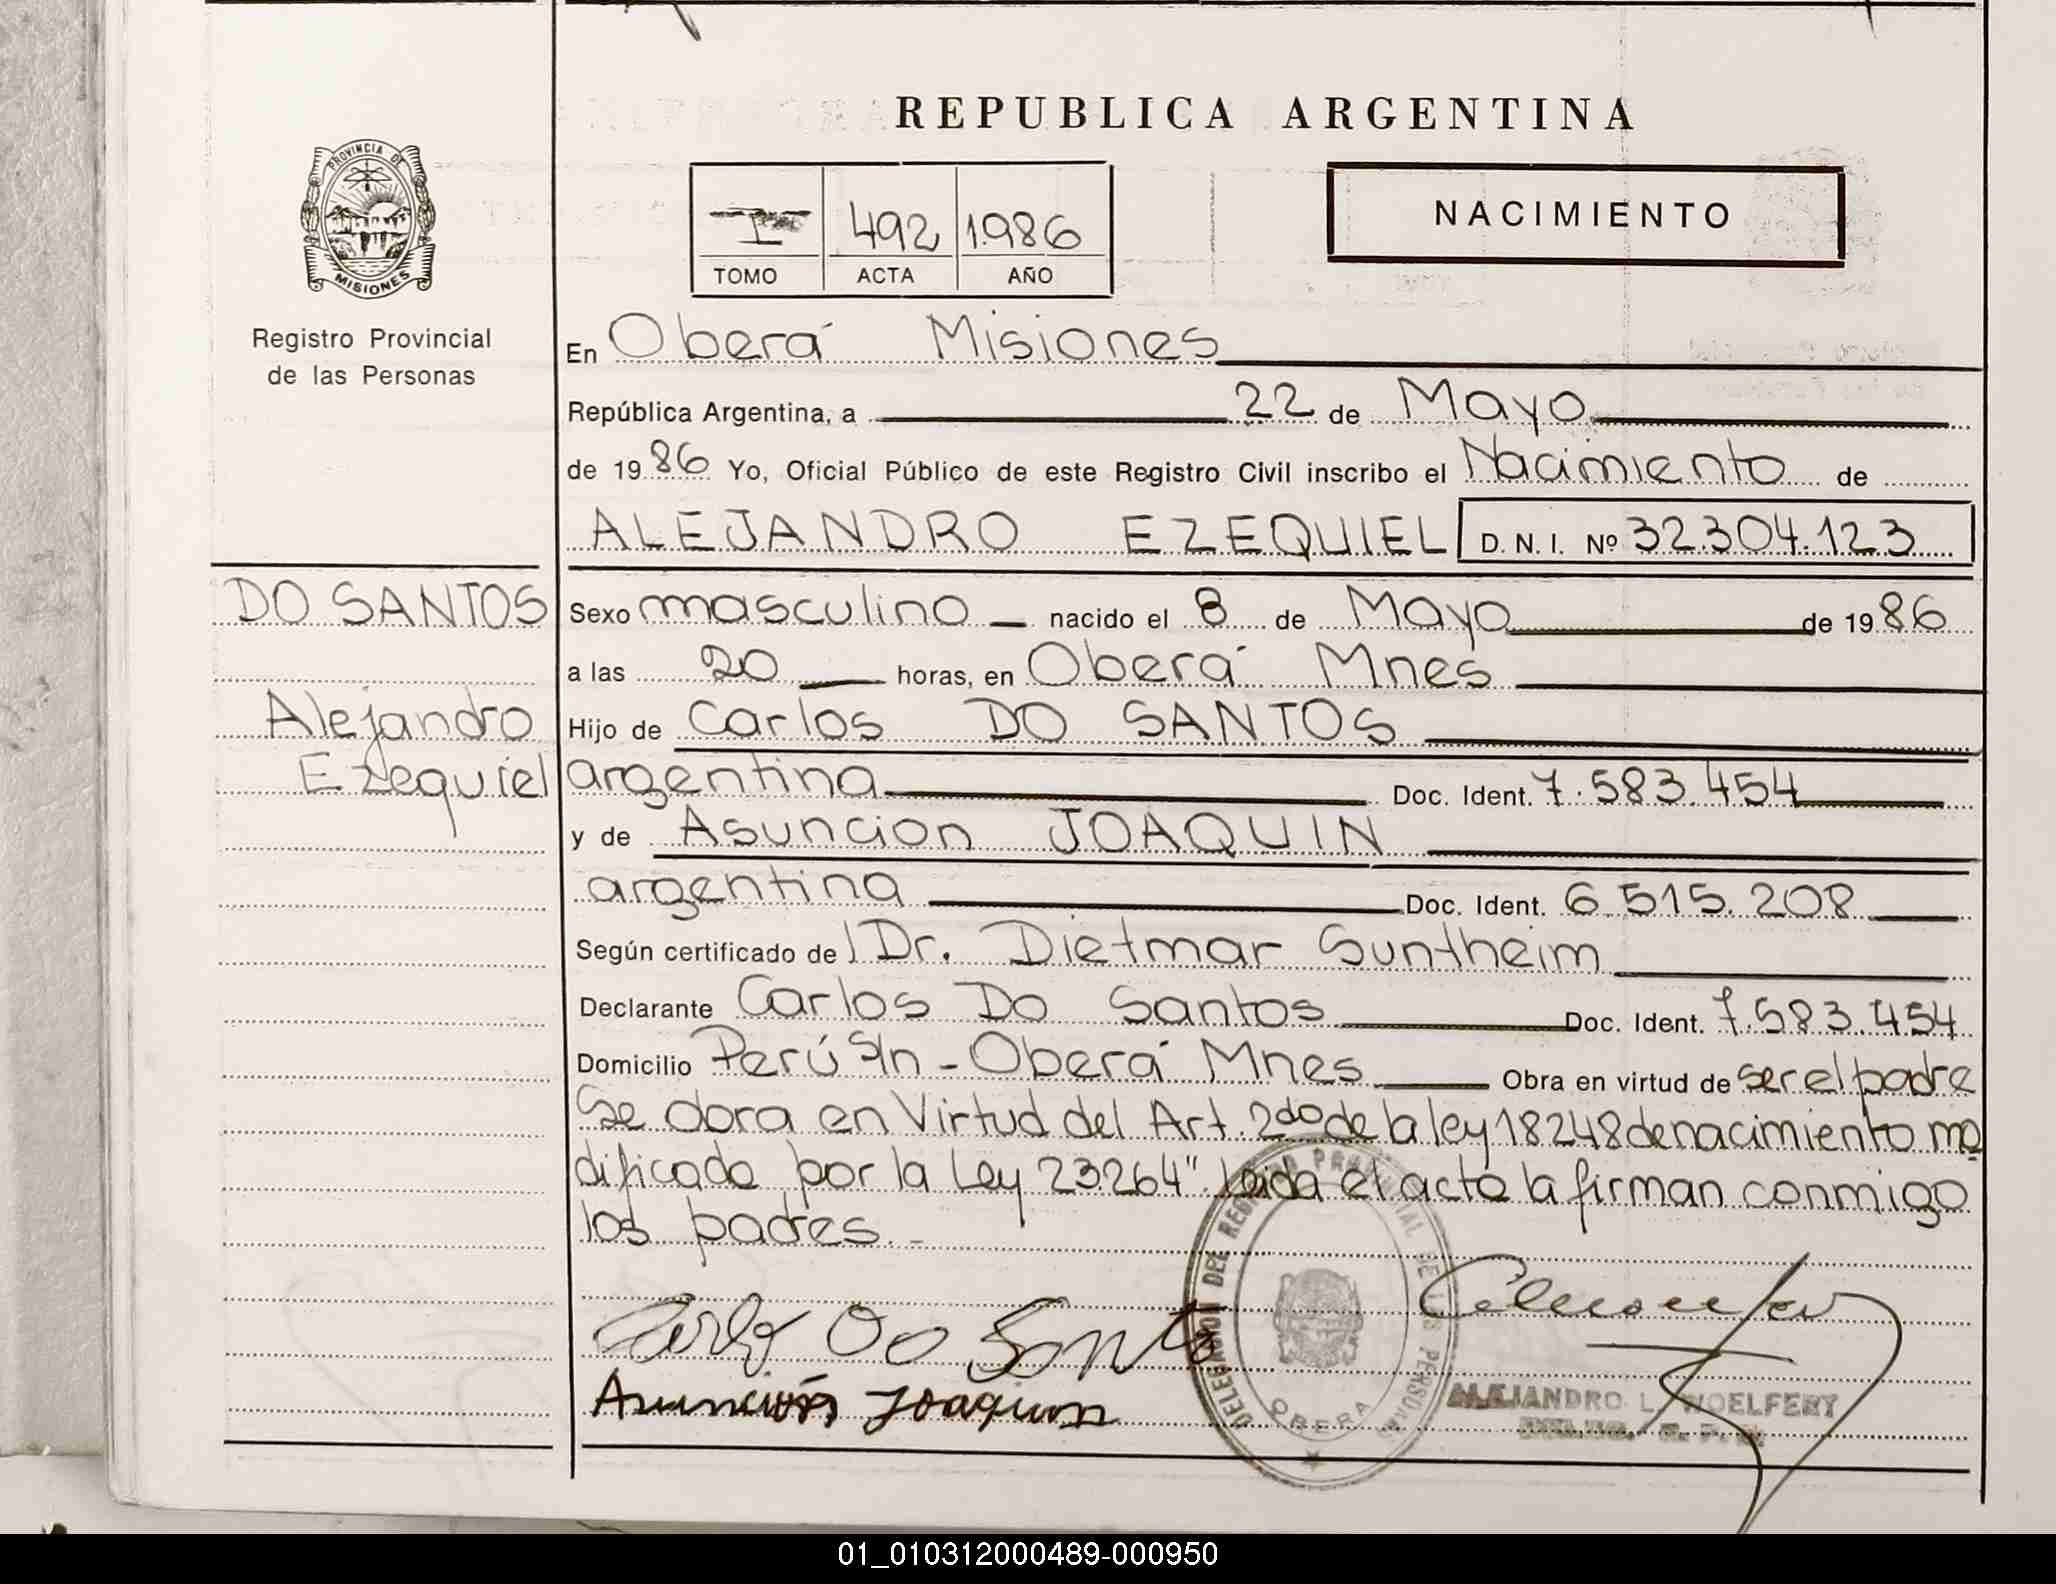 REPUBLICA ARGENTINA
PROVINCIA DE
MISIONES
Registro Provincial
de las Personas
I 492 1.986
TOMO ACTA AÑO
NACIMIENTO
En Oberá Misiones
República Argentina, a 22 de Mayo
de 1986 Yo, Oficial Público de este Registro Civil inscribo el Nacimiento de
ALEJANDRO EZEQUIEL D. N. I. Nº 32.304.123
DO SANTOS
Alejandro
Ezequiel
Sexo masculino nacido el 8 de Mayo de 1986
a las 20 horas, en Oberá Mnes
Hijo de Carlos DO SANTOS
argentina Doc. Ident. 7.583.454
y de Asuncion JOAQUIN
argentina Doc. Ident. 6.515.208
Según certificado de Dr. Dietmar Suntheim
Declarante Carlos Do Santos Doc. Ident. 7.583.454
Domicilio Perú S/n - Oberá Mnes Obra en virtud de ser el padre
Se obra en Virtud del Art. 2do de la ley 18248 de nacimiento mo
dificado por la Ley 23.264" Leida el acta la firman conmigo
los padres. -
Carlos Do Santos
Asunción Joaquin
DELEGACION DEL REGISTRO PROVINCIAL DE LAS PERSONAS
OBERA
ALEJANDRO L. WOELFERT
01_010312000489-000950